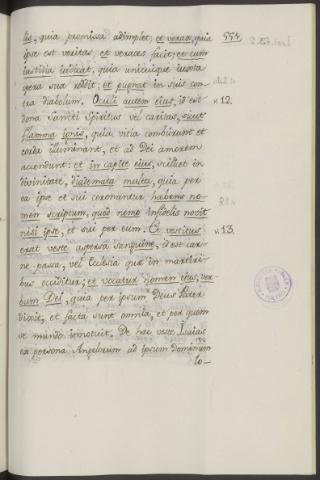 lis, quia promissa adimplet; et verax, quia
ipse est veritas, et veraces facit; et cum
iustitia iudicat, quia unicuique iuxta
opera sua reddit; et pugnat in suis con-
tra diabolum. Oculi autem eius, id est
dona Sancti Spiritus vel caritas, sicut
flamma ignis, quia vitia comburunt et
corda illuminant, et ad Dei amorem
accendunt: et in capite eius, scilicet in
divinitate, diademata multa, quia per
ea ipse et sui coronantur habens no-
men scriptum, quod nemo infidelis novit
nisi ipse, et sui per eum. Et vestitus
erat veste aspersa sanguine, id est car-
ne passa, vel Eclesia que in martiri-
bus occiditur; et vocatur nomen eius, ver-
bum Dei, quia per ipsum Deus Pater
dixit, et facta sunt omnia, et per quem
se mundo innotuit. De hac veste Isaias
ex persona Angelorum ad ipsum dominum
lo-
554
v. 12.
v. 13.